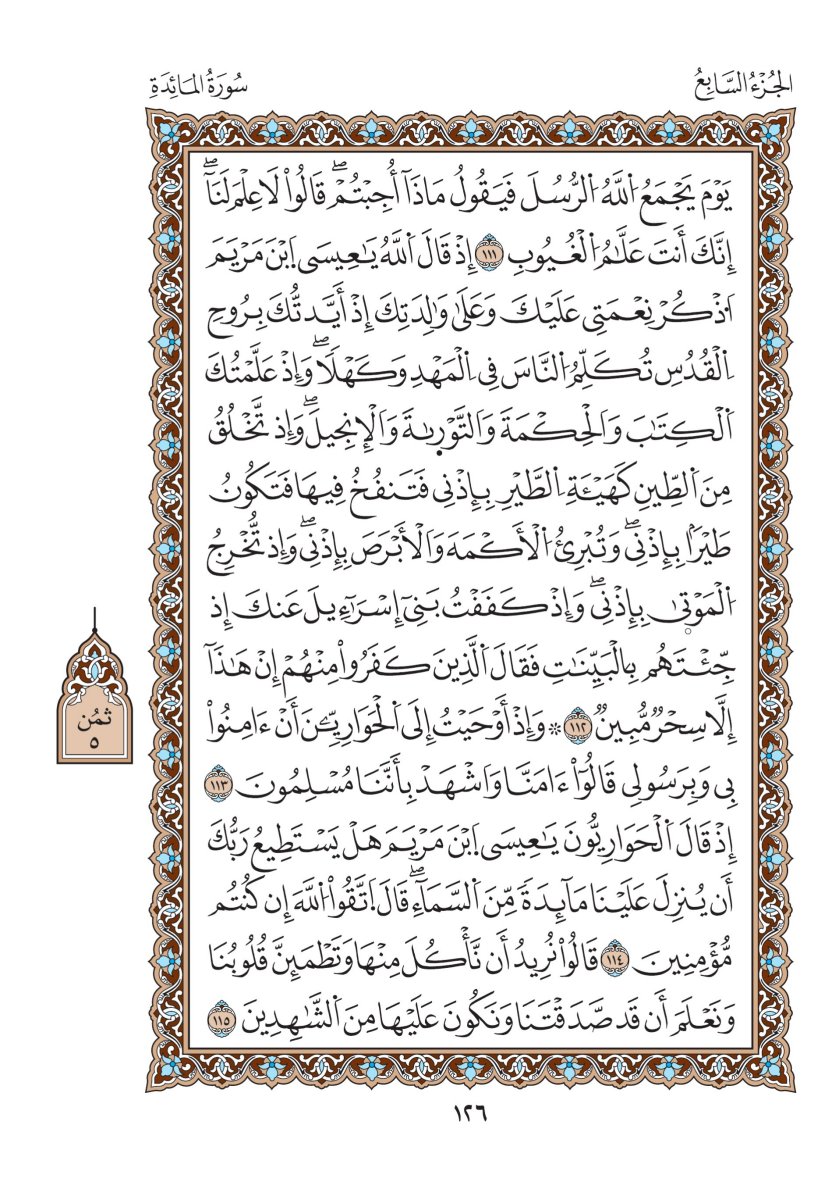 الجُزْءُ السَّابِعُ
سُورَةُ المَائِدَةِ
يَوْمَ يَجْمَعُ اُ۬للَّهُ اُ۬لرُّسُلَ فَيَقُولُ مَاذَآ أُجِبْتُمْۖ قَالُواْ لَا عِلْمَ لَنَآۖ
إِنَّكَ أَنتَ عَلَّٰمُ اُ۬لْغُيُوبِ ١١١ إِذْ قَالَ اَ۬للَّهُ يَٰعِيسَى اَ۪بْنَ مَرْيَمَ
اَ۟ذْكُرْ نِعْمَتِى عَلَيْكَ وَعَلَىٰ وَٰلِدَتِكَ إِذْ أَيَّدتُّكَ بِرُوحِ
اِ۬لْقُدُسِ تُكَلِّمُ اُ۬لنَّاسَ فِى اِ۬لْمَهْدِ وَكَهْلًاۖ وَإِذْ عَلَّمْتُكَ
اَ۬لْكِتَٰبَ وَالْحِكْمَةَ وَالتَّوْر۪ىٰةَ وَالْإِنجِيلَۖ وَإِذ تَّخْلُقُ
مِنَ اَ۬لطِّينِ كَهَيْـَٔةِ اِ۬لطَّيْرِ بِإِذْنِى فَتَنفُخُ فِيهَا فَتَكُونُ
طَيْرَۢا بِإِذْنِىۖ وَتُبْرِئُ اُ۬لْأَكْمَهَ وَالْأَبْرَصَ بِإِذْنِىۖ وَإِذ تُّخْرِجُ
اُ۬لْمَوْتىٰ بِإِذْنِىۖ وَإِذْ كَفَفْتُ بَنِىٓ إِسْرَآءِيلَ عَنكَ إِذ
جِّئْتَهُم بِالْبَيِّنَٰتِ فَقَالَ اَ۬لَّذِينَ كَفَرُواْ مِنْهُمْ إِنْ هَٰذَآ
إِلَّا سِحْرٌ مُّبِينٌ ١١٢ ۞ وَإِذْ أَوْحَيْتُ إِلَى اَ۬لْحَوَارِيِّـۧنَ أَنْ ءَامِنُواْ
بِى وَبِرَسُولِى قَالُوٓاْ ءَامَنَّا وَاشْهَدْ بِأَنَّنَا مُسْلِمُونَ ١١٣
إِذْ قَالَ اَ۬لْحَوَارِيُّونَ يَٰعِيسَى اَ۪بْنَ مَرْيَمَ هَلْ يَسْتَطِيعُ رَبُّكَ
أَن يُنزِلَ عَلَيْنَا مَآئِدَةً مِّنَ اَ۬لسَّمَآءِۖ قَالَ اَ۪تَّقُواْ اُ۬للَّهَ إِن كُنتُم
مُّؤْمِنِينَ ١١٤ قَالُواْ نُرِيدُ أَن نَّأْكُلَ مِنْهَا وَتَطْمَئِنَّ قُلُوبُنَا
وَنَعْلَمَ أَن قَد صَّدَقْتَنَا وَنَكُونَ عَلَيْهَا مِنَ اَ۬لشَّٰهِدِينَ ١١٥
ثمُن
٥
١٢٦